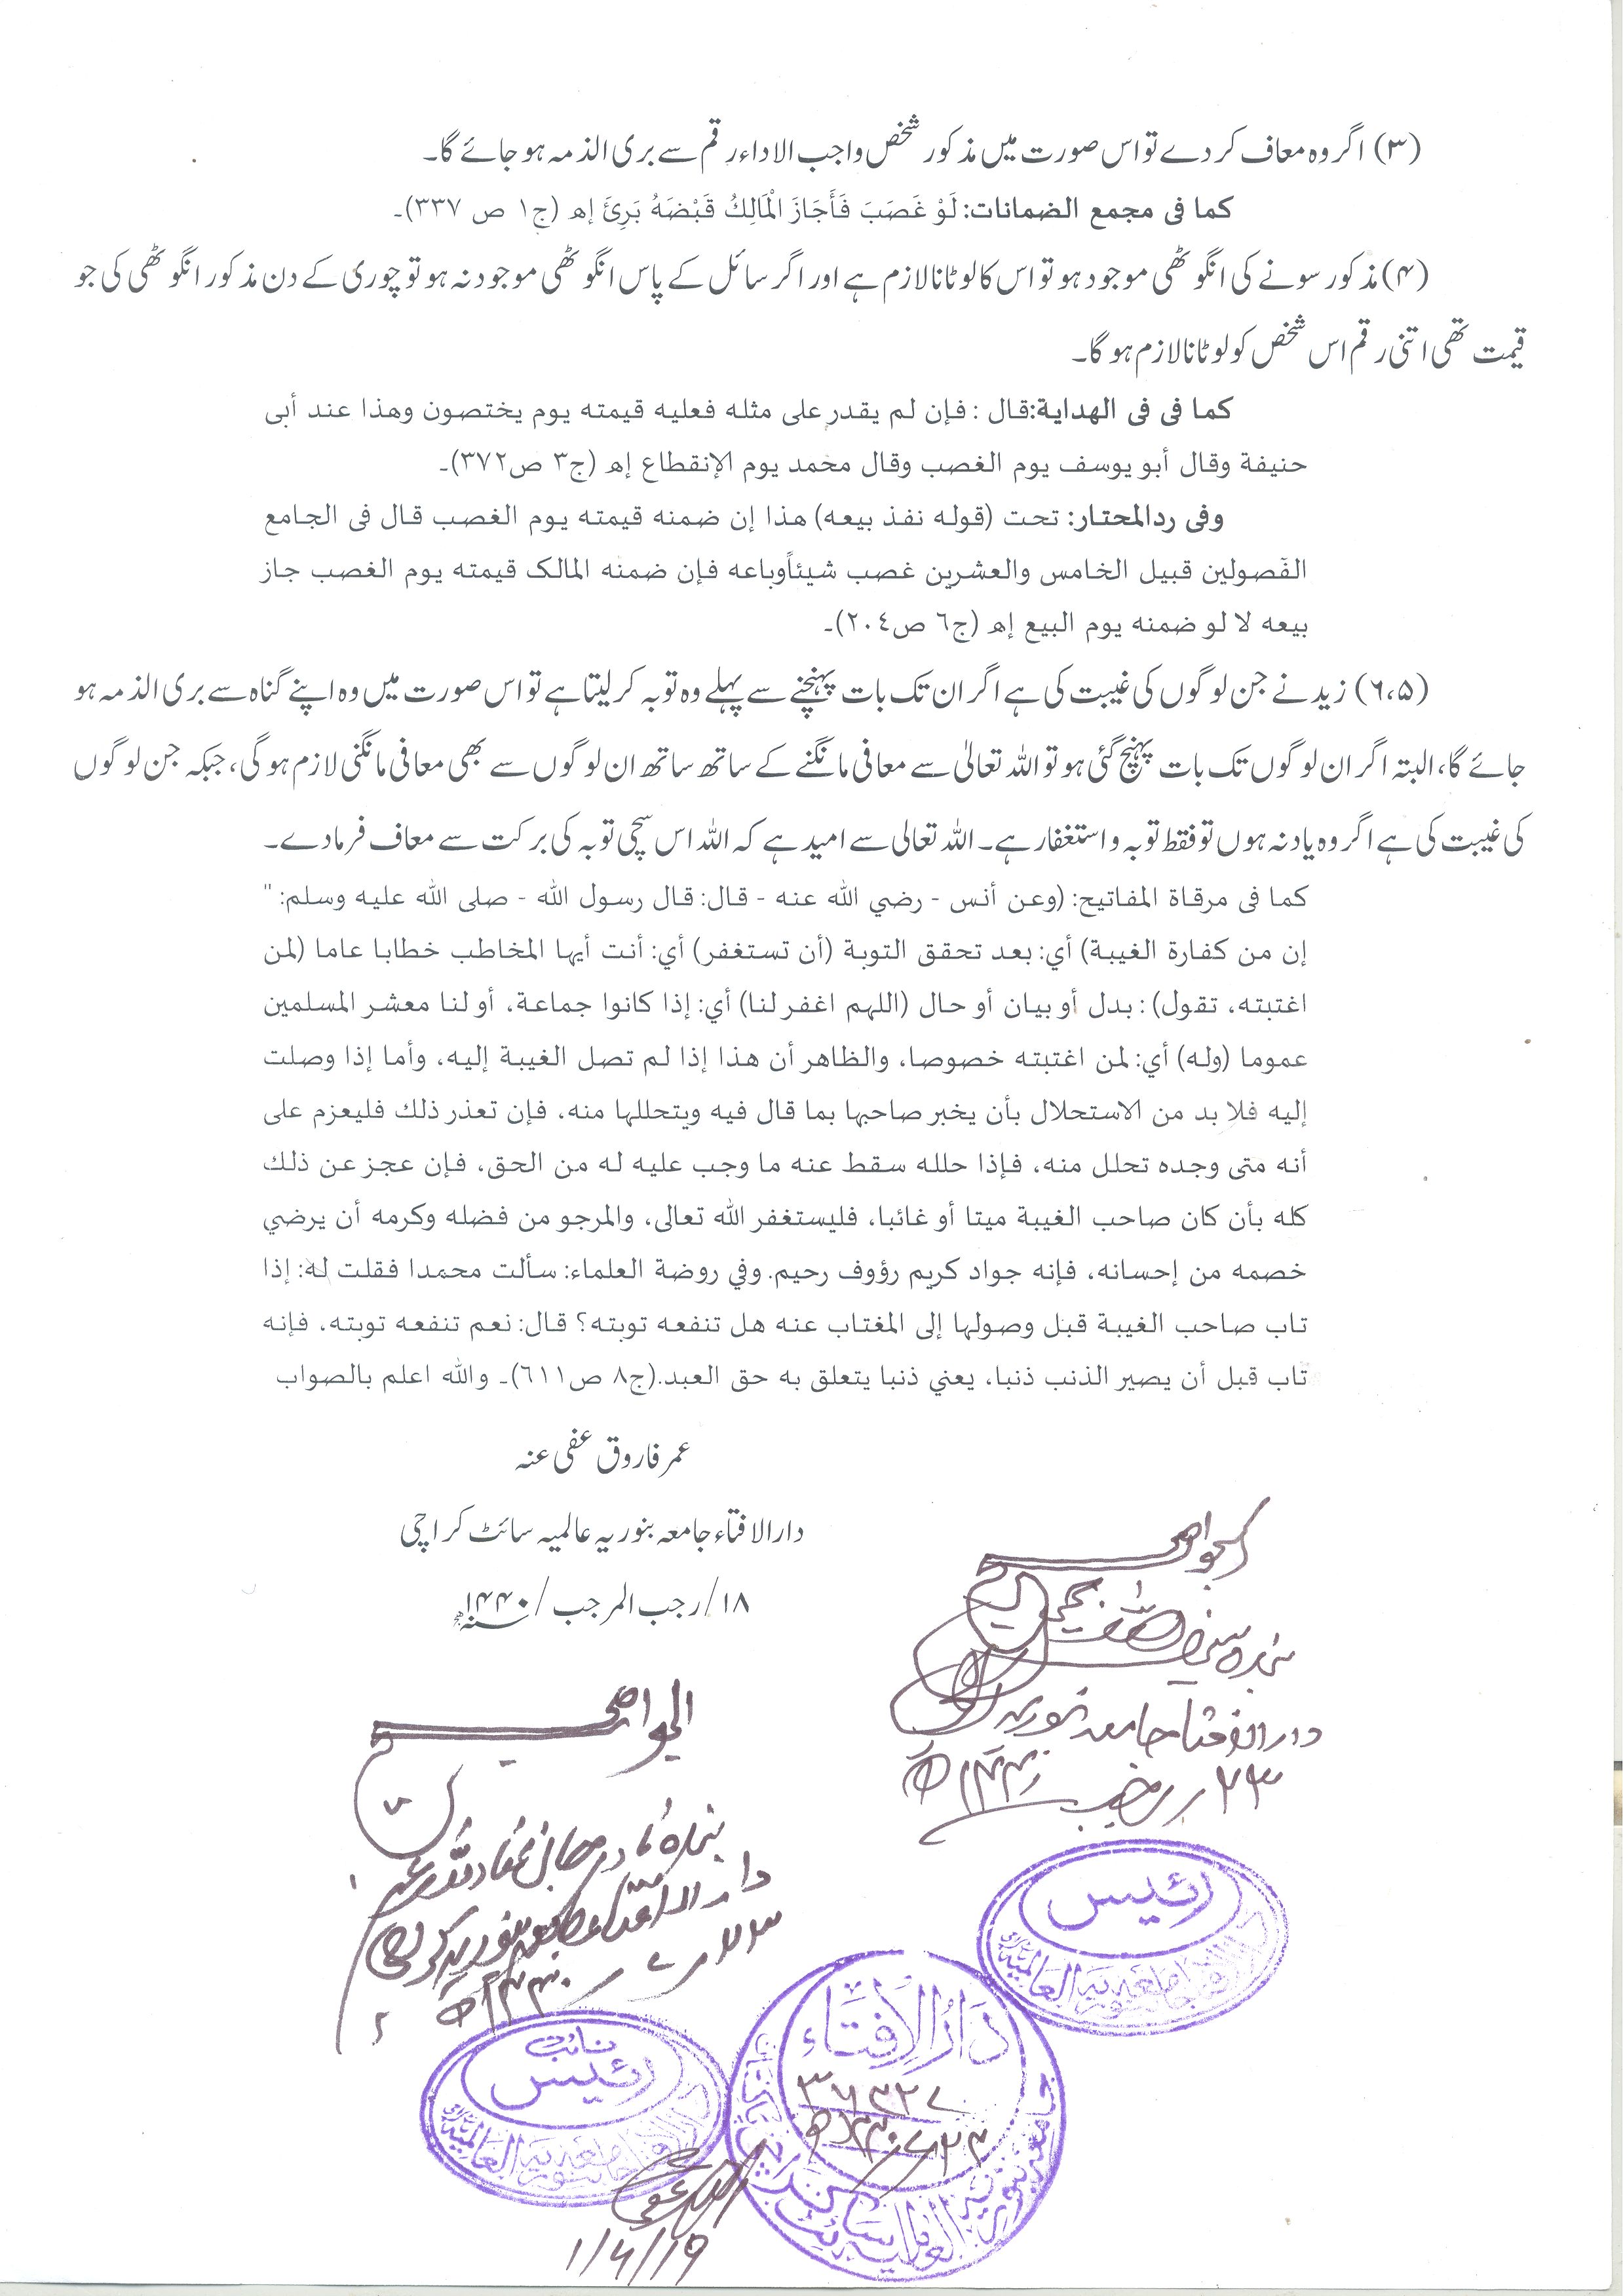 (۳) اگر وہ معاف کر دے تو اس صورت میں مذکور شخص واجب الاداء رقم سے بری الذمہ ہو جائے گا۔
کما فی مجمع الضمانات: لَوْ غَصَبَ فَأَجَازَ الْمَالِكُ قَبْضَهُ بَرِئَ إھ (ج۱ ص ۳۳۷)۔
(۴) مذکور سونے کی انگوٹھی موجود ہو تو اس کا لوٹانا لازم ہے اور اگر سائل کے پاس انگوٹھی موجود نہ ہو تو چوری کے دن مذکور انگوٹھی کی جو
قیمت تھی اتنی رقم اس شخص کو لوٹانا لازم ہو گا۔
کما فی فی الهدایة: قال : فإن لم يقدر على مثله فعليه قيمته يوم يختصون وهذا عند أبی
حنيفة وقال أبو يوسف يوم الغصب وقال محمد يوم الإنقطاع إھ (ج۳ ص۳۷۲)۔
وفی ردالمحتار: تحت (قوله نفذ بيعه) هذا إن ضمنه قيمته يوم الغصب قال فی الجامع
الفصولين قبيل الخامس والعشرين غصب شيئاًوباعه فإن ضمنه المالک قيمته يوم الغصب جاز
بيعه لا لو ضمنه يوم البيع إھ (ج٦ ص٢٠٤)۔
(۶،۵) زید نے جن لوگوں کی غیبت کی ہے اگر ان تک بات پہنچنے سے پہلے وہ توبہ کر لیتا ہے تو اس صورت میں وہ اپنے گناہ سے بری الذمہ ہو
جائے گا، البتہ اگر ان لوگوں تک بات پہنچ گئی ہو تو اللہ تعالیٰ سے معافی مانگنے کے ساتھ ساتھ ان لوگوں سے بھی معافی مانگنی لازم ہو گی، جبکہ جن لوگوں
کی غیبت کی ہے اگر وہ یاد نہ ہوں تو فقط توبہ و استغفار ہے۔ اللہ تعالی سے امید ہے کہ اللہ اس سچی توبہ کی برکت سے معاف فرمادے۔
کما فی مرقاة المفاتيح: (وعن أنس - رضي الله عنه - قال: قال رسول الله - صلى الله عليه وسلم: "
إن من كفارة الغيبة) أي: بعد تحقق التوبة (أن تستغفر) أي: أنت أيها المخاطب خطابا عاما (لمن
اغتبته، تقول) : بدل أو بيان أو حال (اللهم اغفر لنا) أي: إذا كانوا جماعة، أو لنا معشر المسلمين
عموما (وله) أي: لمن اغتبته خصوصا، والظاهر أن هذا إذا لم تصل الغيبة إليه، وأما إذا وصلت
إليه فلا بد من الاستحلال بأن يخبر صاحبها بما قال فيه ويتحللها منه، فإن تعذر ذلك فليعزم على
أنه متى وجده تحلل منه، فإذا حلله سقط عنه ما وجب عليه له من الحق، فإن عجز عن ذلك
كله بأن كان صاحب الغيبة ميتا أو غائبا، فليستغفر الله تعالى، والمرجو من فضله وكرمه أن يرضي
خصمه من إحسانه، فإنه جواد كريم رؤوف رحيم. وفي روضة العلماء: سألت محمدا فقلت له: إذا
تاب صاحب الغيبة قبل وصولها إلى المغتاب عنه هل تنفعه توبته؟ قال: نعم تنفعه توبته، فإنه
تاب قبل أن يصير الذنب ذنبا، يعني ذنبا يتعلق به حق العبد.(ج٨ ص٦١١)۔ والله اعلم بالصواب
عمر فاروق عفی عنہ
دارالافتاء جامعہ بنوریہ عالمیہ سائٹ کراچی
۱۸/رجب المرجب/۱۴۴۰ھ
الجواب صحیح
دارالافتاء جامعہ بنوریہ
۲۳ / رجب ۱۴۴۰ھ
الجواب صحیح
بندہ نادر جان
دارالافتاء جامعہ بنوریہ کراچی
۲۳ - ۷ - ۱۴۴۰ھ
رئیس
دارالافتاء جامعہ بنوریہ العالمیہ
نائب
رئیس
دارالافتاء جامعہ بنوریہ العالمیہ
دَارُالاِفتَاء
۱/۴/۱۹